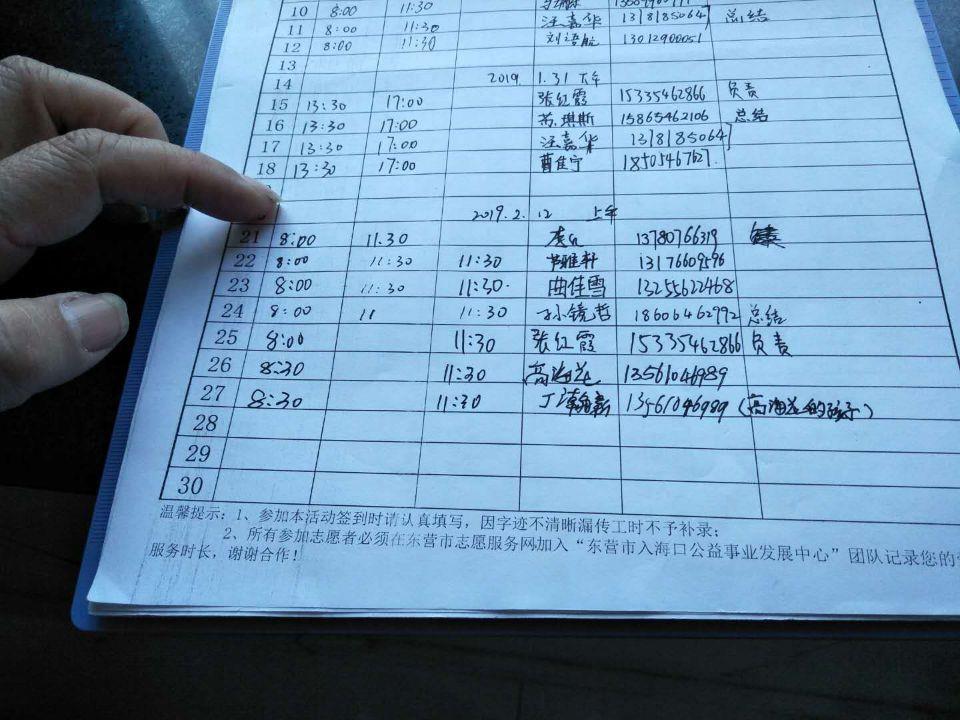 10 8:00 11:30
11 8:00 11:30 汪嘉华 1318185064 总结
12 8:00 11:30 刘语航 13012900051
13
14 2019. 1.31 下午
15 13:30 17:00 张红霞 15335462866 负责
16 13:30 17:00 苏琪斯 15865462106 总结
17 13:30 17:00 汪嘉华 1318185064
18 13:30 17:00 曹佳宁 18505467627
2019.2.12 上午
21 8:00 11.30 13780766319
22 8:00 11:30 11:30 13176609596
23 8:00 11:30 11:30 曲佳雪 13255622468
24 8:00 11 11:30 孙镜哲 18606462992 总结
25 8:00 11:30 张红霞 15335462866 负责
26 8:30 11:30 高海花 13561046989
27 8:30 11:30 13561046989 (高海花的孩子)
28
29
30
温馨提示：1、参加本活动签到时请认真填写，因字迹不清晰漏传工时不予补录；
2、所有参加志愿者必须在东营市志愿服务网加入“东营市入海口公益事业发展中心”团队记录您的
服务时长，谢谢合作！